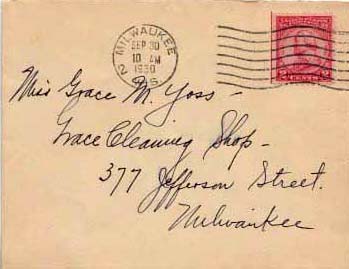 2 MILWAUKEE WIS
SEP 30
10 AM
1930
2 CENTS 2
Miss Grace M. Yoss -
Grace Cleaning Shop -
377 Jefferson Street.
Milwaukee